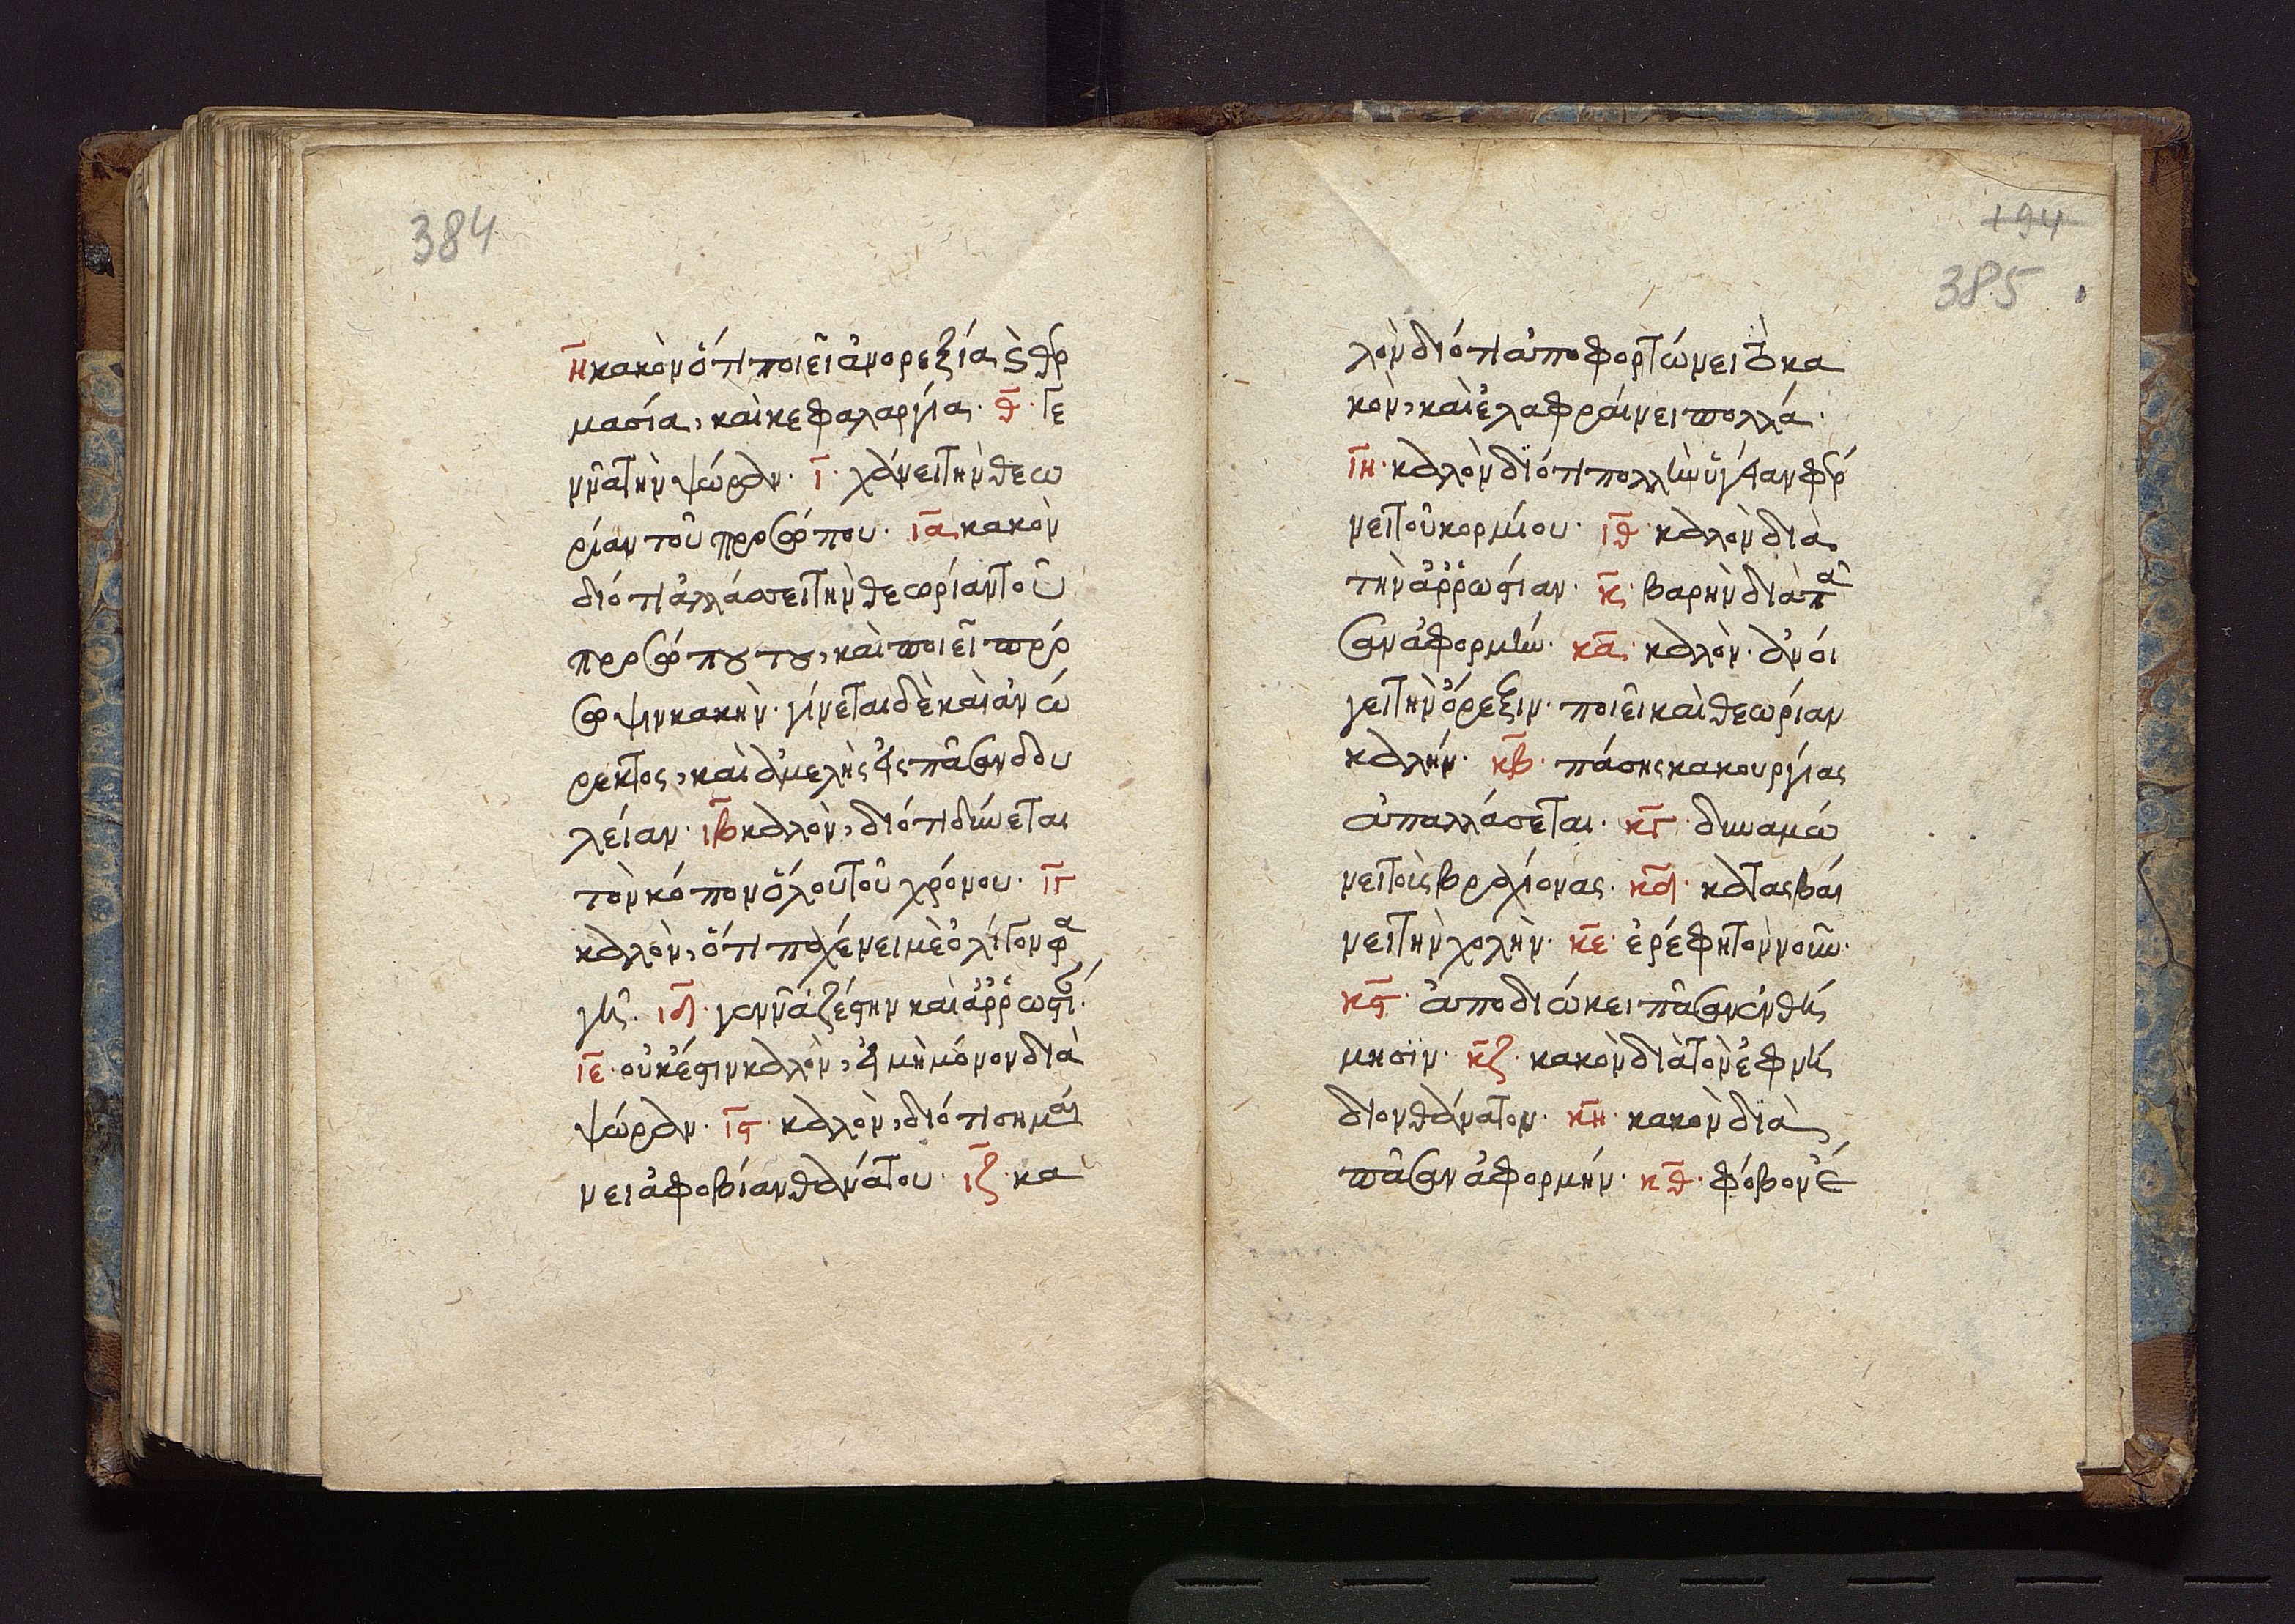 384
η κακὸν ὅτι ποιεῖ ἀνορεξία ϗ θερ
μασία, καὶ κεφαλαργία. θ. γε
ννᾶ τὴν ψώραν. ι. χάνει τὴν θεω
ρίαν τοῦ προσώπου. ια κακὸν
διότι ἀλλάσσει τὴν θεορίαν τοῦ
προσώπου του, καὶ ποιεῖ πρό
σωψιν κακὴν. γίνεται δὲ καὶ ἀνώ
ρεκτος, καὶ ἀμελὴς εἰς πᾶσαν δου
λείαν. ιβ καλὸν, διότι δύνεται
τὸν κόπον ὅλου τοῦ χρόνου. ιγ
καλὸν, ὅτι παχένει μὲ ὀλίγον φα
γεῖ. ιδ. γεννᾶ ζέστην καὶ ἀῤῥωστί.
ιε. οὐκ ἔστιν καλὸν, εἰ μὴ μόνον διὰ
ψώραν. ις. καλὸν, διότι σημαί
νει ἀφοβίαν θανάτου. ιζ. κα
194
385
λὸν διότι ἀποφορτώνει τὸ κα
κὸν, καὶ ἐλαφραίνει πολλά.
ιη. καλὸν διότι πολλὴν ὑγείαν φέρ
νει τοῦ κορμίου. ιθ. καλὸν διὰ
τὴν ἀῤῥωστίαν. κ. βαρὴν διὰ πᾶ
σαν ἀφορμήν. κα. καλὸν. ἀνοί
γει τὴν ὄρεξιν. ποιεῖ καὶ θεωρίαν
καλήν. κβ. πάσης κακουργίας
ἀπαλλάσεται. κγ. δυναμώ
νει τοὶς βραχίονας. κδ. κατασβαί
νει τὴν χολὴν. κε. ἐρέφη τὸν νοῦν.
κς. ἀποδιώκει πᾶσαν ἐνθεί
μησϊν. κζ. κακὸν διὰ τὸν ἐφνεί
διον θάνατον. κη. κακὸν διὰ
πᾶσαν ἀφορμήν. κθ. φόβον ἐ